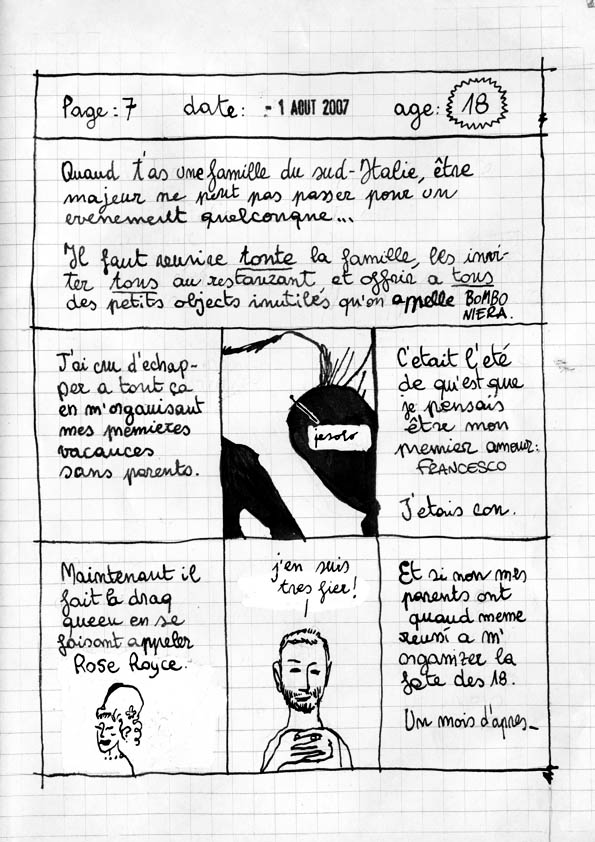 Page: 7 date: - 1 AOUT 2007 age: 18
Quand t'as une famille du sud-Italie, être
majeur ne peut pas passer pour un
evenement quelconque...
Il faut reunire toute la famille, les invi-
ter tous au restaurant, et offrir a tous
des petits objects inutiles qu'on appelle BOMBO
NIERA.
J'ai cru d'echap-
per a tout ça
en m'organisant
mes premieres
vacances
sans parents.
jesolo
C'etait l'eté
de qu'est que
je pensais
être mon
premier amour:
FRANCESCO
J'etais con.
Maintenant il
fait la draq
queen en se
faisant appeler
Rose Royce.
j'en suis
tres fier!
Et si non mes
parents ont
quand meme
reussi a m'
organizer la
fete des 18.
Un mois d'apres_